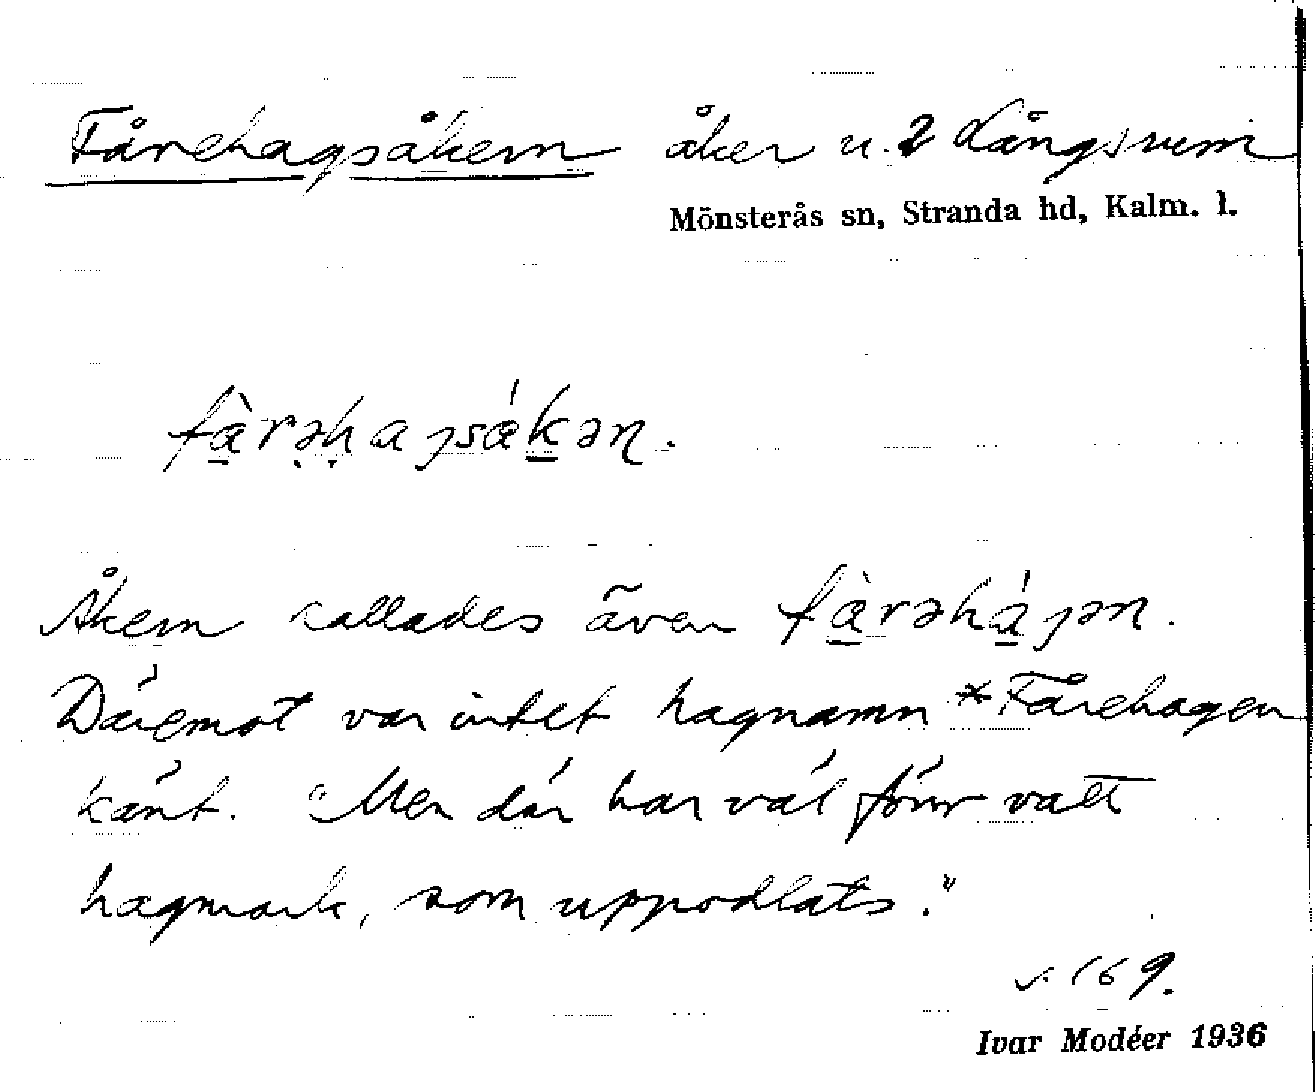 Fårehagsåkern åker u. 2 Långsrum
Mönsterås sn, Stranda hd, Kalm. l.
fàrəhaɟsákəɳ.
Åkern kallades även fàrəháɟən.
Däremot var intet hagnamn *Fårehagen
känt. "Men där har väl förr vatt
hagmark, som uppodlats."
s. 169.
Ivar Modéer 1936